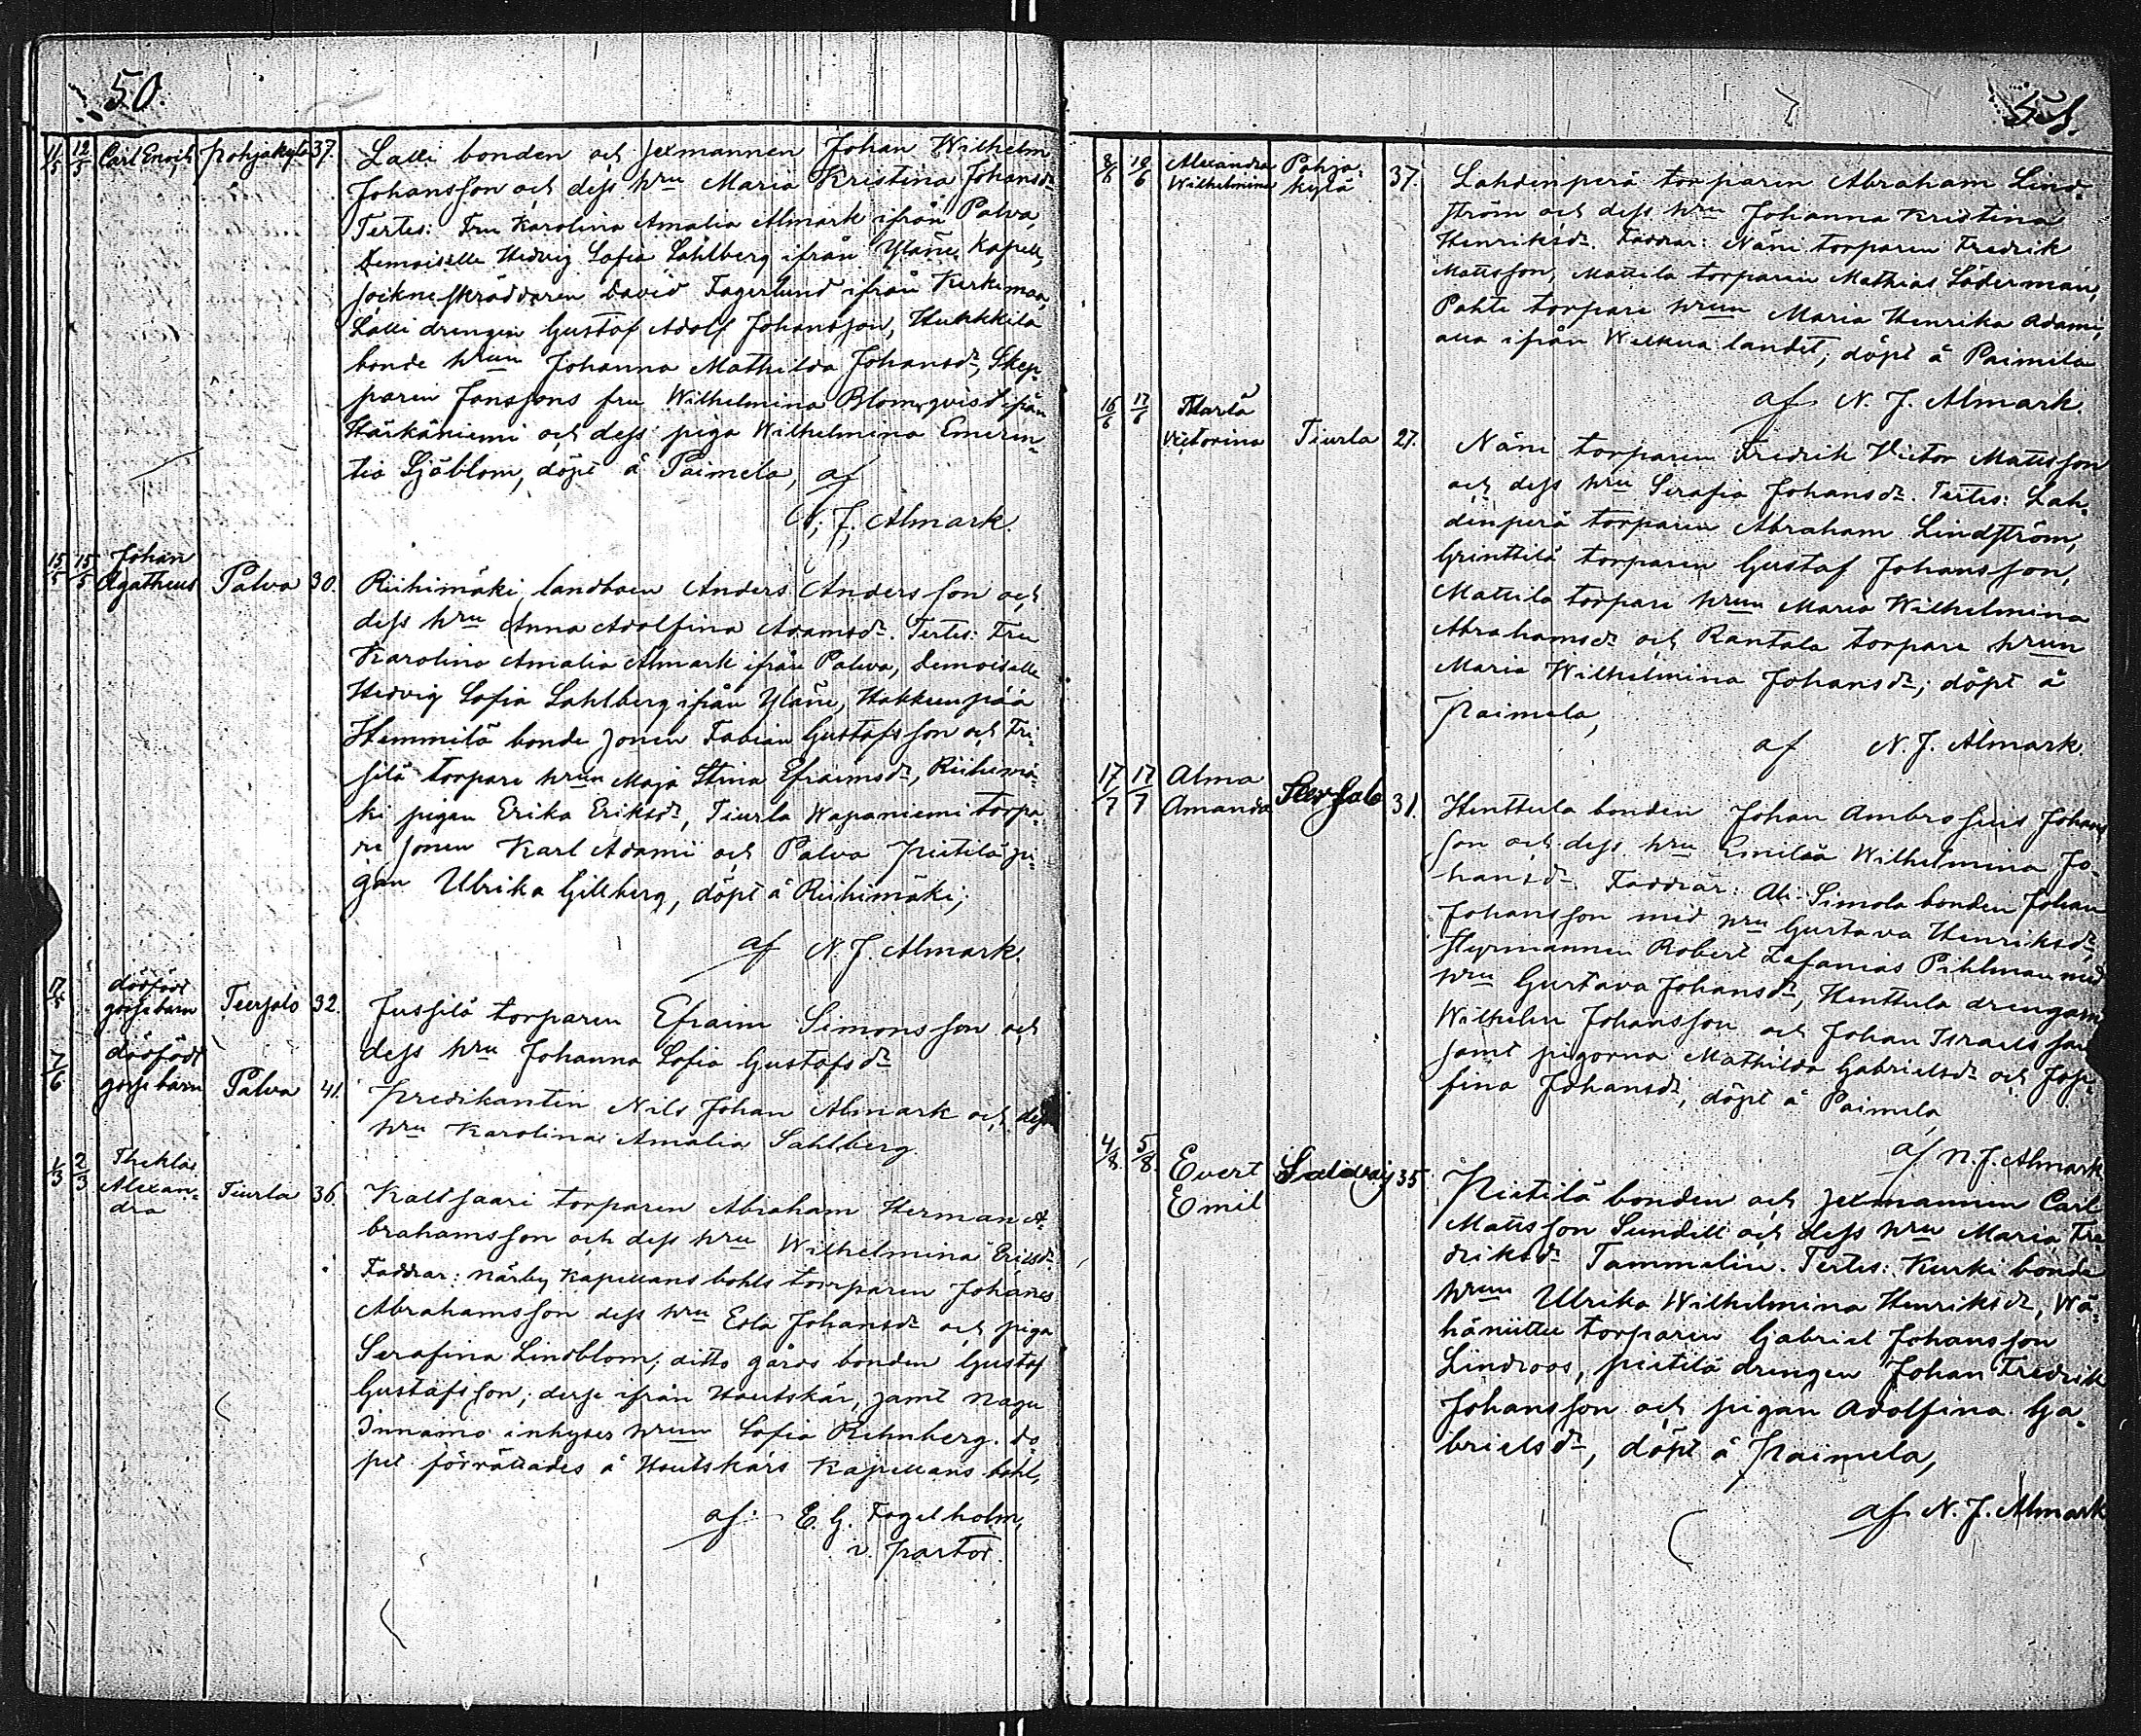 50.
11/5 12/5 Carl Enoch Pohjakylä 37. Lalli bonden och sexmannen Johan Wilhelm
Johansson och dess hru Maria Kristina Johansdr
Testes: Fru Karolina Amalia Almark ifrån Palva,
Demoiselle Hedvig Sofia Sahlberg ifrån Yläne Kapell,
sockneskräddaren David Fagerlund ifrån Kerkimaa,
Lalli drengen Gustaf Adolf Johansson, Hukkila
bonde hrun Johanna Mathilda Johansdr, Skep-
paren Janssons fru Wilhelmina Blomqvist ifrån
Härkäniemi och dess piga Wilhelmina Emeren-
tia Sjöblom, döpt å Paimela, af
N. J. Almark.
15/5 15/5 Johan
Agatheus Palva 30. Riihimäki landboen Anders Andersson och
dess hru Anna Adolfina Adamsdr. Testes: Fru
Karolina Amalia Almark ifrån Palva, Demoiselle
Hedvig Sofia Sahlberg ifrån Yläne, Hakkenpää
Hemmilä bonde sonen Fabian Gustafsson och Fri-
silä torpare hrun Maja Stina Efraimsdr, Riihimä-
ki pigan Erika Eriksdr, Tiurla Wapaniemi torpa-
re sonen Karl Adami och Palva Pietilä pi-
gan Ulrika Gillberg, döpt å Riihimäki;
af N. J. Almark.
17/5 dödfödt
gossebarn Teersalo 32. Jussilä torparen Efraim Simonsson och
dess hru Johanna Sofia Gustafsdr
7/6 dödfödt
gossebarn Palva 41. Predikanten Nils Johan Almark och dess
hru Karolina Amalia Sahlberg
1/3 2/3 Thekla
Alexan-
dra Tiurla 36. Kaitsaari torparen Abraham Herman A-
brahamsson och dess hru Wilhelmina Ericsdr.
Faddrar: närby Kapellans bohls torparen Johannes
Abrahamsson dess hru Edla Johansdr och piga
Serafina Lindblom; ditto gårds bonden Gustaf
Gustafsson; desse ifrån Houtskär, samt Nagu
Innamo inhyses hrun Sofia Rehnberg. do
pet förrättades å Houtskärs Kapellans bohl,
af E. G. Fogelholm,
v. pastor.
51.
8/6 10/6 Alexandra
Wilhelmina Pohja-
kylä 37. Lahdenperä torparen Abraham Lind-
ström och dess hru Johanna Kristina
Henriksdr. Faddrar: Näni torparen Fredrik
Mattsson, Mattila torparen Mathias Söderman,
Pahte torpare hrun Maria Henrika Adami,
alla ifrån Welkua landet, döpt å Paimela
af N. J. Almark.
16/6 17/6 Maria
Victorina Tiurla 27. Näni torparen Fredrik Victor Mattsson
och dess hru Serafia Johansdr. Testes: Lah-
denperä torparen Abraham Lindström,
Grinttilä torparen Gustaf Johansson,
Mattila torpare hrun Maria Wilhelmina
Abrahamsdr och Rantala torpare hrun
Maria Wilhelmina Johansdr; döpt å
Paimela,
af N. J. Almark.
17/7 17/7 Alma
Amanda Teersalo 31. Henttula bonden Johan Ambrosius Johans
son och dess hru Emilia Wilhelmina Jo-
hansdr. Faddrar: Ali-Simola bonden Johan
Johansson med hru Gustava Henriksdr,
Styrmannen Robert Zafanias Pihlman med
hru Gustava Johansdr, Henttula drengarne
Wilhelm Johansson och Johan Israelsson
samt pigorna Mathilda Gabrielsdr och Jose-
fina Johansdr, döpt å Paimela
af N. J. Almark
4/8 5/8 Evert
Emil 35. Pietilä bonden och sexmannen Carl
Mattsson Sundell och dess hru Maria Fre
driksdr Tammelin. Testes: Kurki bonde
hrun Ulrika Wilhelmina Henriksdr, Wä-
häniittu torparen Gabriel Johansson
Lindroos, pietilä drengen Johan Fredrik
Johansson och pigan Adolfina Ga-
brielsdr, döpt å Paimela,
af N. J. Almark